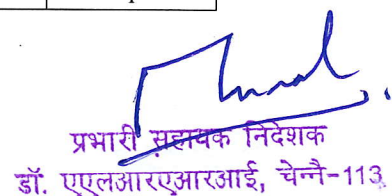 प्रभारी सहायक निदेशक
डॉ. एएलआरएआरआई, चेन्नै-113